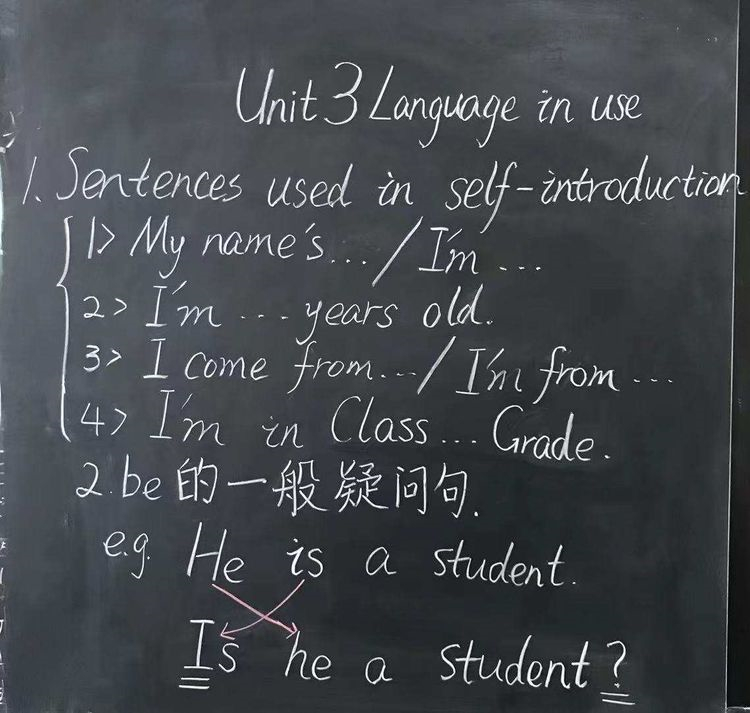 Unit 3 Language in use
1. Sentences used in self-introduction
1> My name's... / I'm ...
2> I'm ... years old.
3> I come from... / I'm from ...
4> I'm in Class... Grade.
2. be的一般疑问句.
e.g. He is a student.
Is he a student?